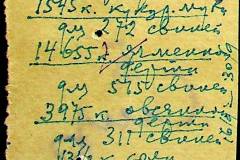 1545 к. кукур. муки
для 272 свиней
14655 к. ячменной
дерти
для 515 свиней
3975 к. овсяной
дерти
для 311 свиней